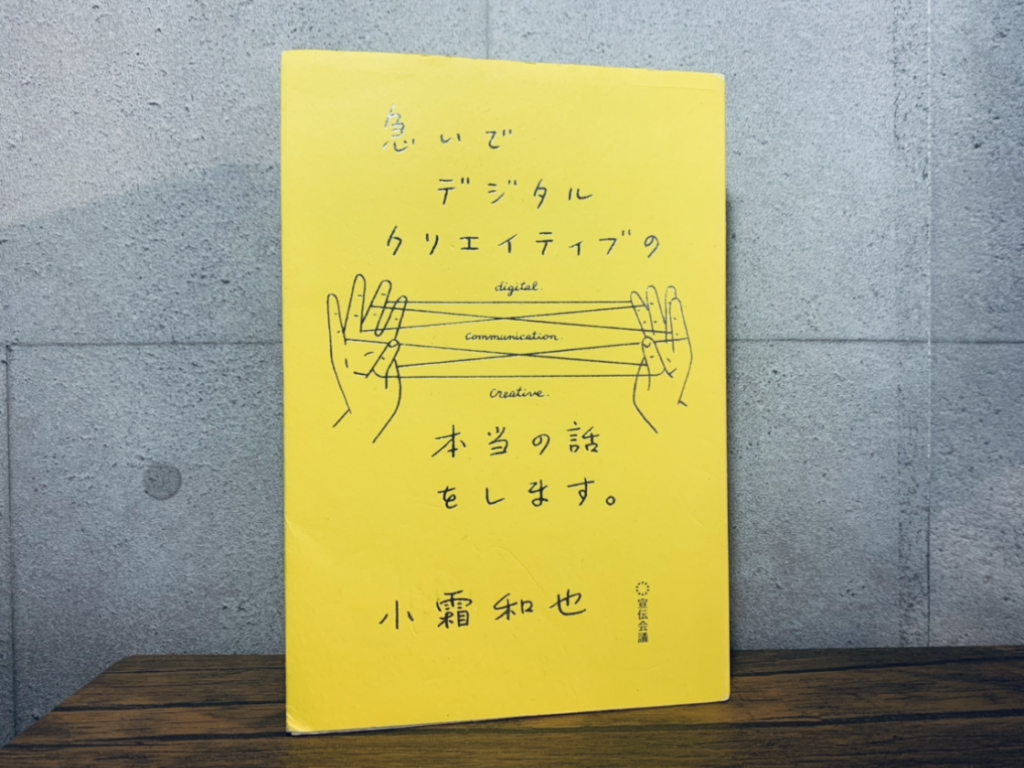 急いで
デジタル
クリエイティブの
digital.
Communication.
Creative.
本当の話
をします。
小霜和也
宣伝会議